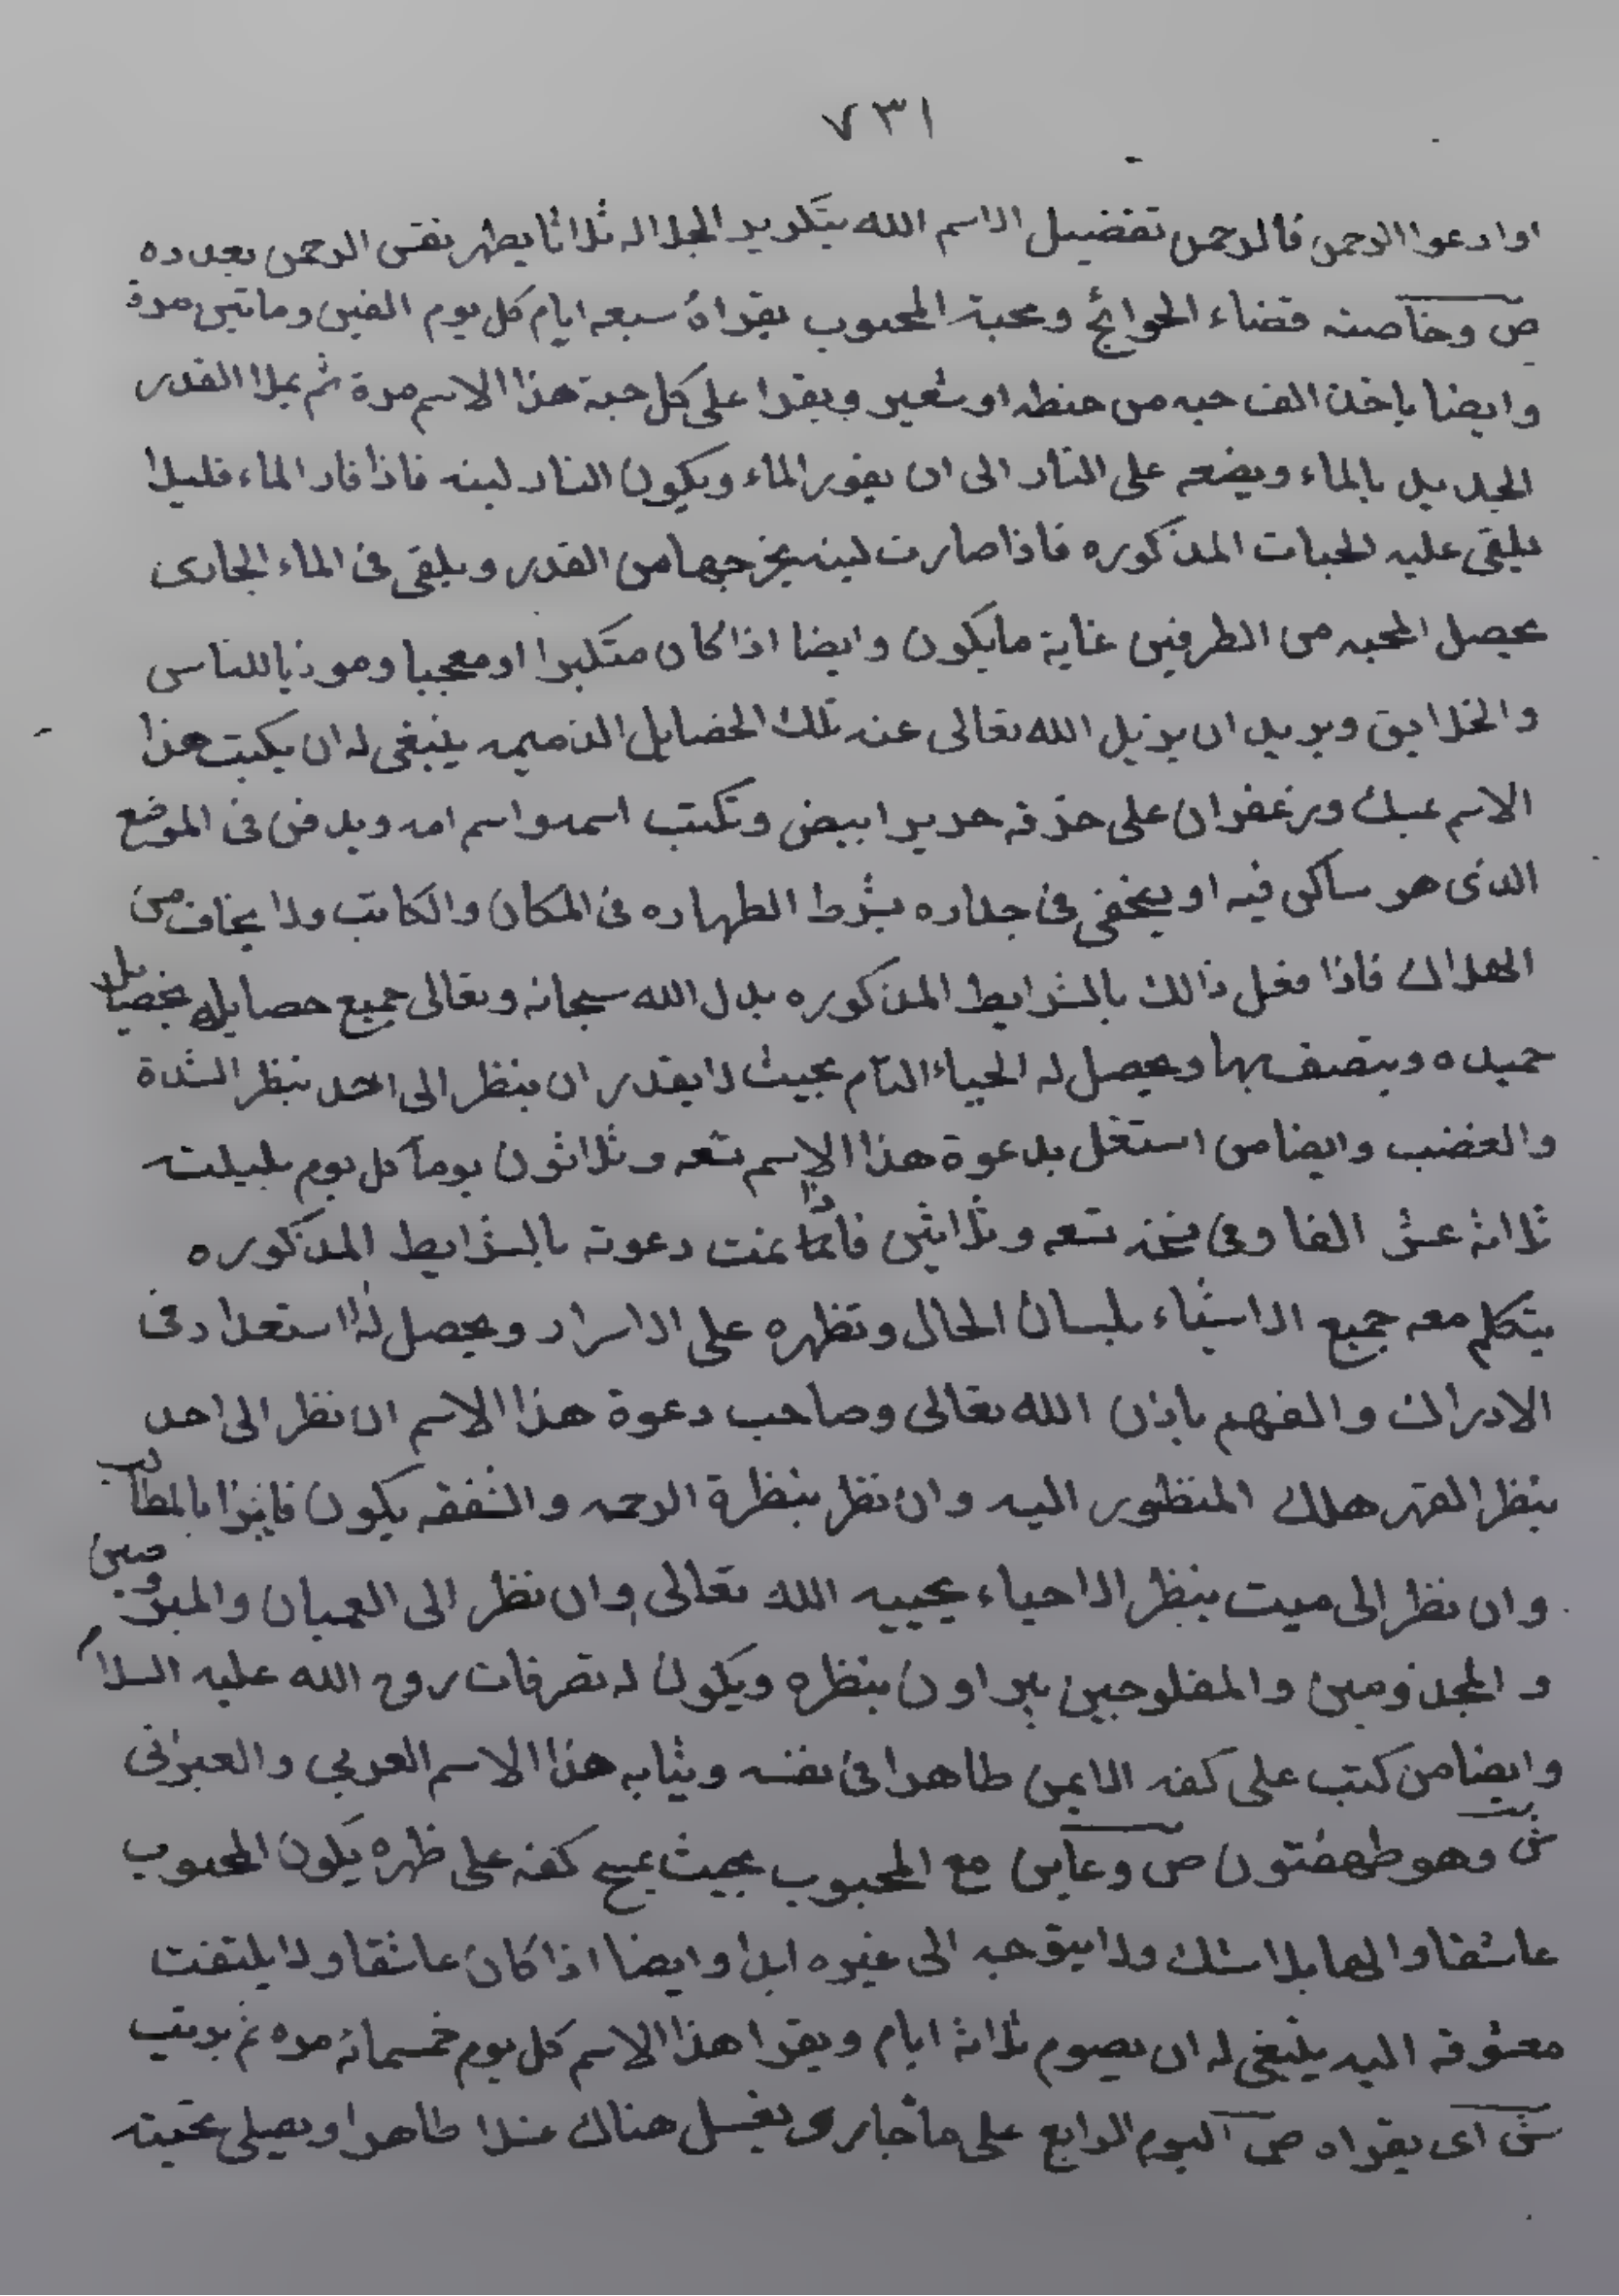 ٧٣١
او ادعوا الرحمن فالرحمن تفضيل الاسم الله بتكرير الجلاله ثلاثا يظهر نقس الرحمن بعدده
ص وخاصته قضاء الحوائج ومحبة المحبوب يقراهٔ سبعه ايام كل يوم الفين وماتين مرة
وايضا ياخذ الف حبه من حنطه او شعير ويقرا على كل حبة هذا الاسم مرة ثم يملا القدر
الجديد بالماء ويضعه على النار الى ان يفور الماء ويكون النار لينه فاذا فار الماء قليلا
يلقى عليه الحبات المذكوره فاذا صارت لينه يخرجها من القدر ويلقى فى الماء الجارى
يحصل المحبه من الطرفين غاية مايكون وايضا اذا كان متكبرا او معجبا وموذيا للناس
والخلايق ويريد ان يزيل الله تعالى عنه تلك الخصايل الذميمه ينبغى له ان يكتب هذا
الاسم بمسك وزعفران على خرقه حرير ابيض وتكتب اسمه واسم امه ويدفن فى الموضع
الذى هو ساكن فيه او يخفى فى جداره بشرط الطهاره فى المكان والكاتب ولا يخاف من
الهلاك فاذا فعل ذالك بالشرايط المذكوره بدل الله سبحانه وتعالى جميع خصايله بخصايل
حميده ويتصف بها ويحصل له الحياء التام بحيث لا يقدر ان ينظر الى احد بنظر الشدة
والغضب وايضا من اشتغل بدعوة هذا الاسم تسعه وثلاثون يوما كل يوم بليلته
ثلاثة عشر الفا وفى نسخه تسعه وثلاثين فاذا تمت دعوته بالشرايط المذكوره
يتكلم معه جميع الاشياء بلسان الحال وتظهره على الاسرار ويحصل له استعداد فى
الادراك والفهم باذن الله تعالى وصاحب دعوة هذا الاسم ان نظر الى احد
بنظر القهر هلك المنظور اليه وان نظر بنظرة الرحمه والشفقه يكون فايزا بالمطالب
وان نظر الى ميت بنظر الاحياء يحييه الله تعالى وان نظر الى العميان والمبروصين
و المجذومين والمفلوجين يبراون بنظره ويكون له تصرفات روح الله عليه السلام
وايضا من كتب على كفه الايمن طاهرا فى نفسه وثيابه هذا الاسم العربي والعبرانى
ش وهو طهفتون ص وعاين مع المحبوب بحيث يمسح كفه على ظهره يكون المحبوب
عاشقا والها بلا شك ولا يتوجه الى غيره ابدا وايضا اذا كان عاشقا ولا يلتفت
معشوقه اليه ينبغى له ان يصوم ثلاثة ايام ويقرا هذا الاسم كل يوم خمسمائه مره ثم يرتب
ش اى يقراه ص اليوم الرابع على ما جار ويغسل هناك غسلا طاهرا ويصلى تحيته